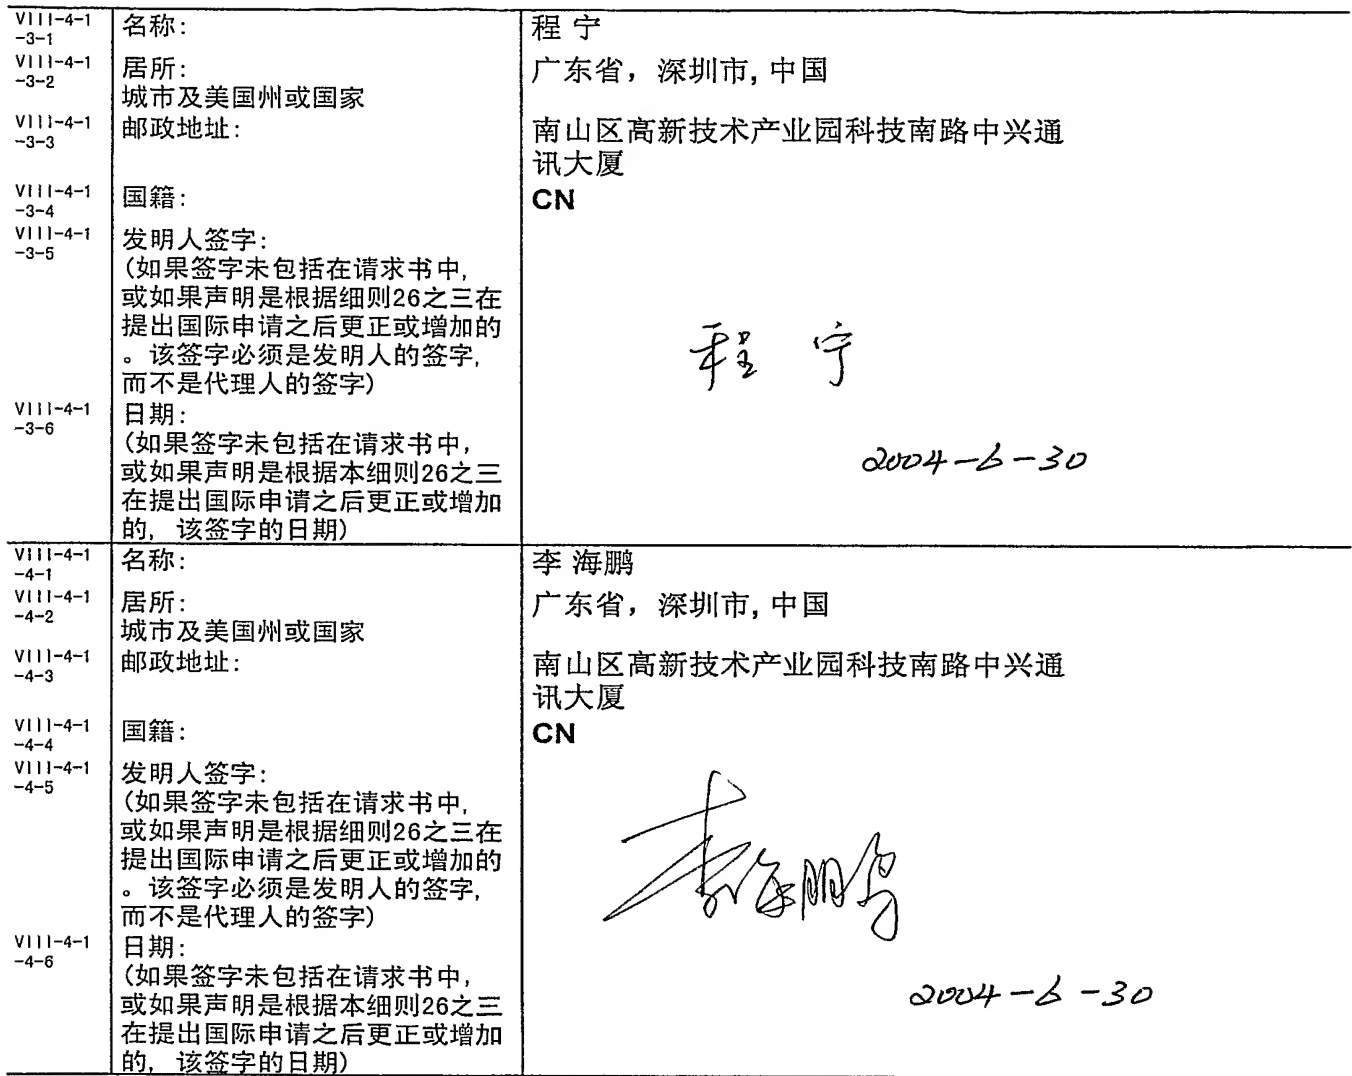 VIII-4-1
-3-1
名称:
程 宁
VIII-4-1
-3-2
居所:
城市及美国州或国家
广东省，深圳市, 中国
VIII-4-1
-3-3
邮政地址:
南山区高新技术产业园科技南路中兴通
讯大厦
VIII-4-1
-3-4
国籍:
CN
VIII-4-1
-3-5
发明人签字:
(如果签字未包括在请求书中,
或如果声明是根据细则26之三在
提出国际申请之后更正或增加的
。该签字必须是发明人的签字,
而不是代理人的签字)
程 宁
VIII-4-1
-3-6
日期:
(如果签字未包括在请求书中,
或如果声明是根据本细则26之三
在提出国际申请之后更正或增加
的, 该签字的日期)
2004-6-30
VIII-4-1
-4-1
名称:
李 海鹏
VIII-4-1
-4-2
居所:
城市及美国州或国家
广东省，深圳市, 中国
VIII-4-1
-4-3
邮政地址:
南山区高新技术产业园科技南路中兴通
讯大厦
VIII-4-1
-4-4
国籍:
CN
VIII-4-1
-4-5
发明人签字:
(如果签字未包括在请求书中,
或如果声明是根据细则26之三在
提出国际申请之后更正或增加的
。该签字必须是发明人的签字,
而不是代理人的签字)
李海鹏
VIII-4-1
-4-6
日期:
(如果签字未包括在请求书中,
或如果声明是根据本细则26之三
在提出国际申请之后更正或增加
的, 该签字的日期)
2004-6-30